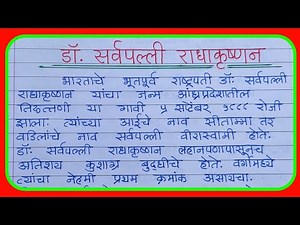 डॉ. सर्वपल्ली राधाकृष्णन
भारताचे भूतपूर्व राष्ट्रपती डॉ. सर्वपल्ली
राधाकृष्णन यांचा जन्म आंध्रप्रदेशातील
तिरुत्तणी या गावी ५ सप्टेंबर १८८८ रोजी
झाला. त्यांच्या आईचे नाव सीताम्मा तर
वडिलांचे नाव सर्वपल्ली वीरास्वामी होते.
डॉ. सर्वपल्ली राधाकृष्णन लहानपणापासूनच
अतिशय कुशाग्र बुद्धीचे होते. वर्गामध्ये
त्यांचा नेहमी प्रथम क्रमांक असायचा.